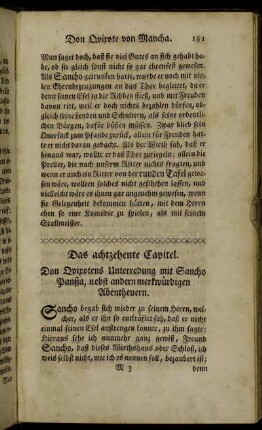 Don Qvixote von Mancha. 181
Man saget doch, daß sie viel Gutes an sich gehabt ha-
be, ob sie gleich sonst nicht so gar ehrenfest gewesen.
Als Sancho getrunken hatte, wurde er noch mit vie-
len Ehrenbezeigungen an das Thor begleitet, da er
denn seinen Esel in die Ribben stieß, und mit Freuden
davon ritt, weil er doch nichts bezahlen dürfen, ob-
gleich seine Lenden und Schultern, als seine ordentli-
chen Bürgen, dafür büßen müssen. Zwar blieb sein
Quersack zum Pfande zurück, allein für Freuden hat-
te er nicht daran gedacht. Als der Wirth sah, daß er
hinaus war, wollte er das Thor zuriegeln; allein die
Preller, die nach unserm Ritter nichts fragten, und
wenn er auch ein Ritter von der runden Tafel gewe-
sen wäre, wollten solches nicht geschehen lassen, und
vielleicht wäre es ihnen gar angenehm gewesen, wenn
sie Gelegenheit bekommen hätten, mit dem Herrn
eben so eine Komödie zu spielen, als mit seinem
Stallmeister.
Das achtzehente Capitel.
Don Qvixotens Unterredung mit Sancho
Panssa, nebst andern merkwürdigen
Abentheuern.
Sancho begab sich wieder zu seinem Herrn, wel-
cher, als er ihn so entkräftet sah, daß er nicht
einmal seinen Esel anstrengen konnte, zu ihm sagte:
Hieraus sehe ich nunmehr ganz gewiß, Freund
Sancho, daß dieses Wirthshaus oder Schloß, ich
weis selbst nicht, wie ich es nennen soll, bezaubert ist;
M 3 denn